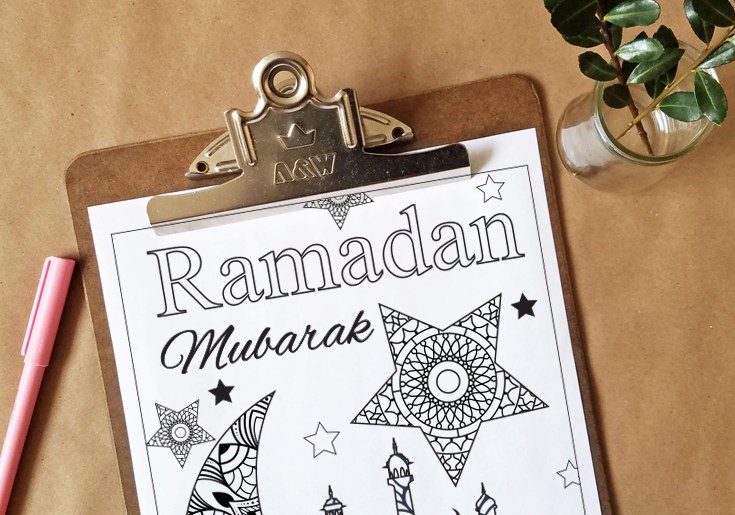 A&W
Ramadan
Mubarak